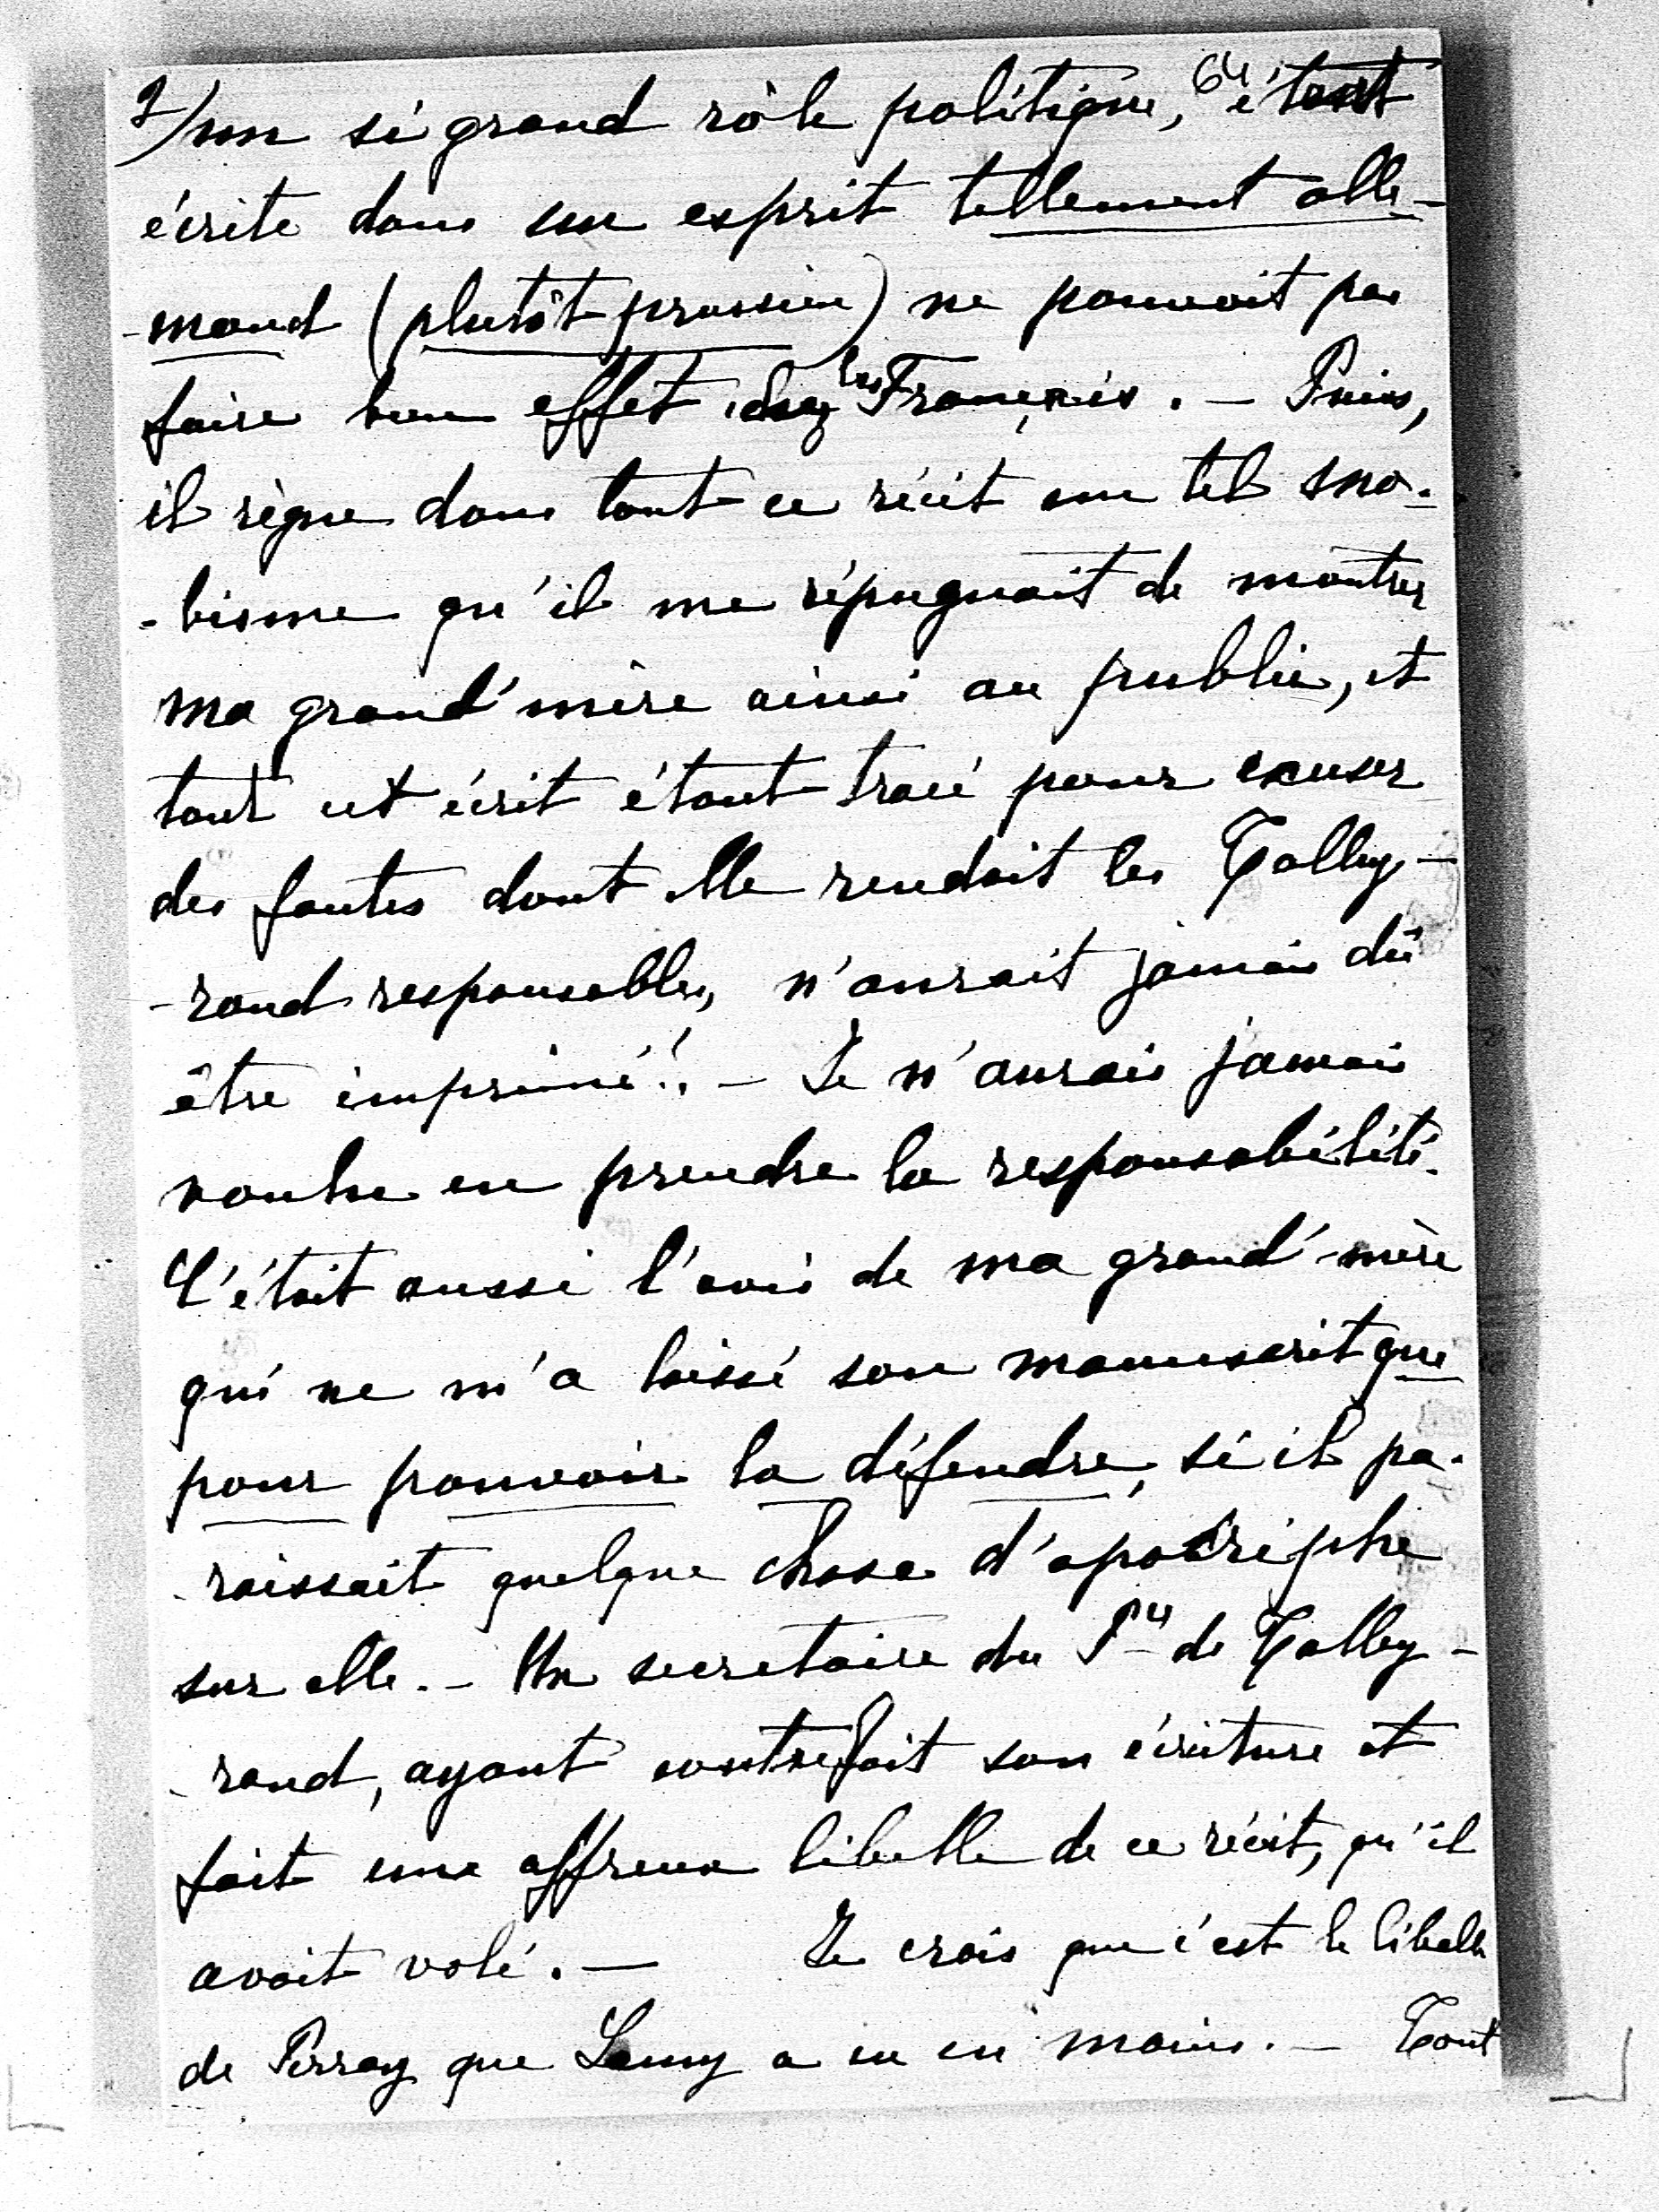 2/ un si grand rôle politique, 64 étant
écrite dans un esprit tellement alle-
-mand (plutôt prussien) ne pouvait pas
faire bon effet chez les Français. — Puis,
il règne dans tout ce récit un tel sno-
-bisme qu'il me répugnait de montrer
ma grand'mère ainsi au public, et
tout cet écrit étant tracé pour excuser
des fautes dont elle rendait les Talley-
-rand responsables, n'aurait jamais dû
être imprimé!. — Je n'aurais jamais
voulu en prendre la responsabilité.
C'était aussi l'avis de ma grand'-mère
qui ne m'a laissé son manuscrit que
pour pouvoir la défendre, si il pa-
-raissait quelque chose d'apocriphe
sur elle. — Un secretaire du Pce de Talley-
-rand, ayant contrefait son écriture et
fait une affreux libelle de ce récit, qu'il
avait volé. — Je crois que c'est le libelle
de Perray que Lamy a eu en mains. — Tout